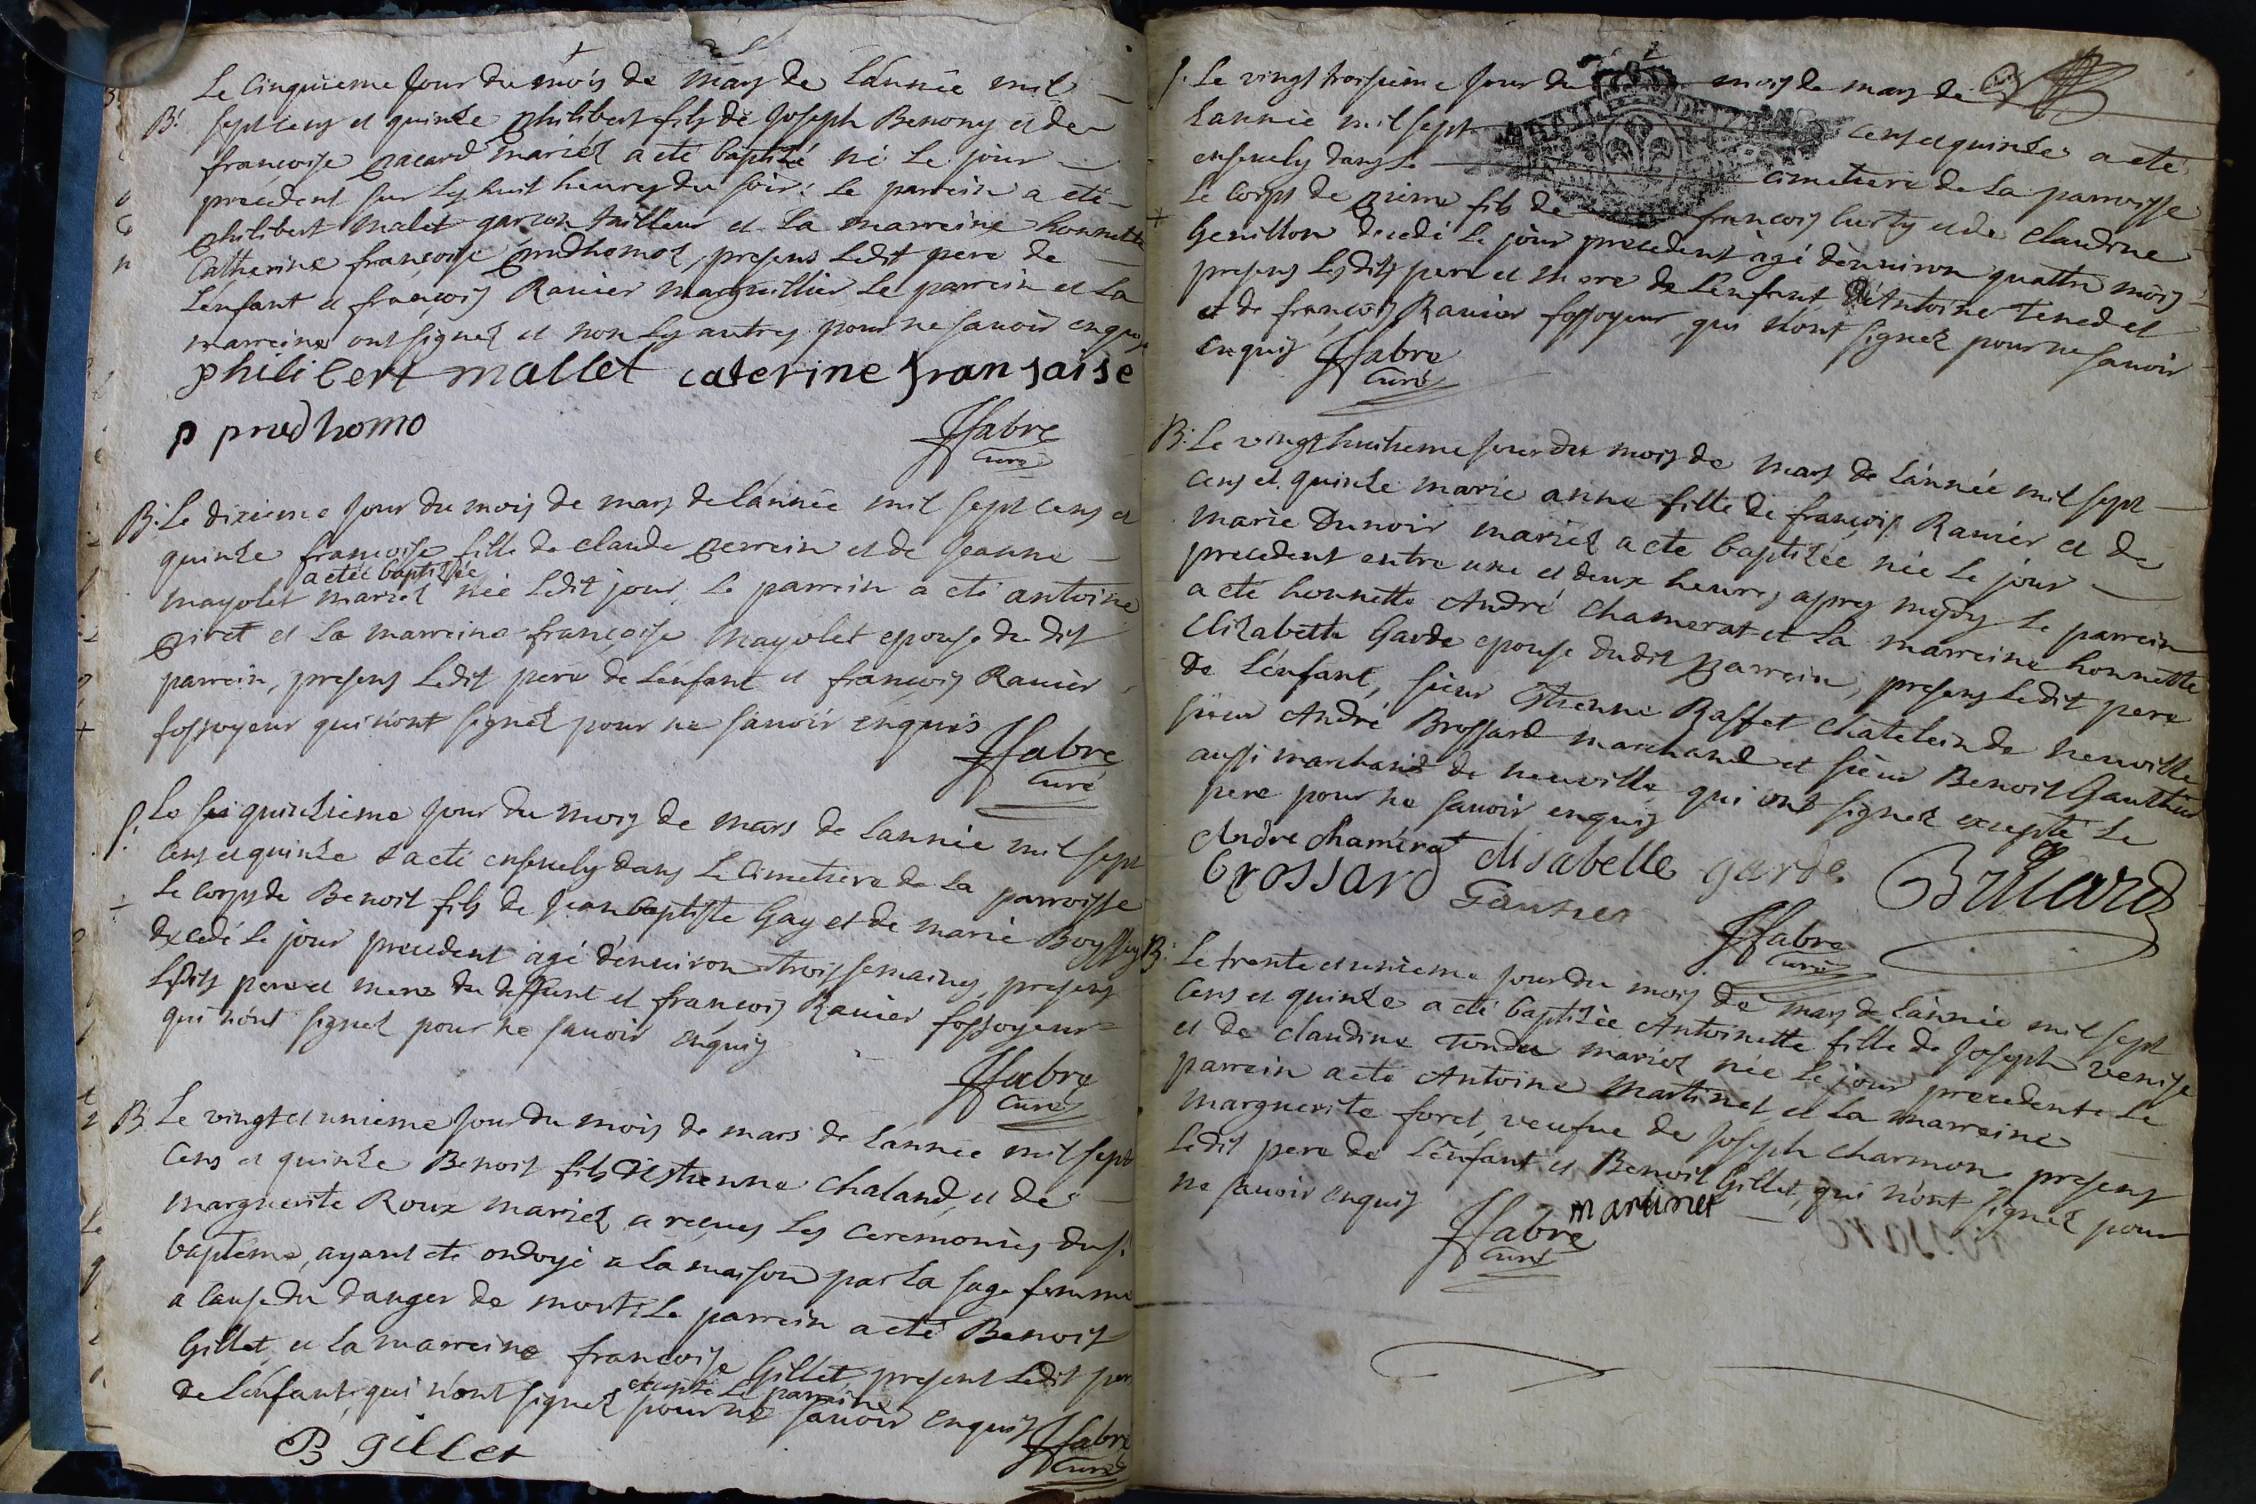 Le cinquieme jour du mois de mars de Lánnée mil
B. sept cens et quinze philibert fils de Joseph Benony et de
francoise pacard mariez a eté baptisé né Le jour
precedent sur Les huit heures du soir: Le parrein a eté
philibert malet garcon tailleur et La marreine honnette
Catherine francoise prudhomoz, presens Ledit pere de
Lénfant et francois Ranier marguillier Le parrein et La
marreine ont signez et non Les autres pour ne sauoir enquis
philibert mallet caterine fransaise
p prudhomo
ffabre
Curé
B. Le dixieme jour du mois de mars de Lánnée mil sept cens et
quinze francoise fille de claude perrein et de Jeanne
a eteé baptisée
mayolet mariez née Ledit jour Le parrein a eté antoine
piret et La marreine francoise Mayolet epouse du dit
parrein, presens Ledit pere de Lénfant et francois Ranier
fossoyeur qui nónt signez pour ne sauoir enquis
ffabre
Curé
S. Le quinzieme jour du mois de mars de Lannée mil sept
Cens et quinze a eté enseuely dans Le cimetiere de La parroisse
Le corps de Benoit fils de Jean baptiste Gay et de marie Boyssey
decedé Le jour precedent agé dénuiron trois semaines, presens
Lesdits pere et mere du deffunt et francois Ranier fossoyeur
qui nónt signez pour ne sauoir enquis
ffabre
Curé
B. Le vingt et unieme jour du mois de mars de Lánnée mil sept
Cens et quinze Benoit fils déstienne chaland, et de
marguerite Roux mariez a reçues Les ceremonies du s.
baptême, ayant eté ondoyé a La maison par La sage femme
a Cause du danger de mort: Le parrein a eté Benoit
Gillet et La marreine francoise Gillet, present Ledit pere
excepté Le parrain
de Lénfant, qui nónt signez pour ne sauoir enquis
B gillet
ffabre
Curé
S. Le vingt troisieme jour du mois de mars de
Lannée mil sept cens et quinze a eté
enseuely dans Le cimetiere de La parroisse
Le corps de pierre fils de francois Curty et de Claudine
Genillon decedé Le jour precedent agé dénuiron quattre mois
presens Lesdits pere et mere de Lénfant, Antoine Tened et
et de francois Ranier fossoyeur, qui nónt signez pour ne sauoir
enquis
ffabre
Curé
B. Le vingt huitieme jour du mois de mars de Lánnée mil sept
cens et quinze marie anne fille de francois Ranier et de
marie Dunoir mariez a eté baptisée née Le jour
precedent entre une et deux heures apres midy Le parrein
a eté honnette André Chamerat et La marreine honnette
Elizabette Garde epouse du dit parrein, presens Ledit pere
de Lénfant, sieur Estienne Raffet chatelein de neuville
sieur André Brossard marchand et sieur Benoit Gauthier
aussi marchand de neuville qui ont signez excepté Le
pere pour ne sauoir enquis
Andre chamérat elisabelle garde
brossard Gautier
ffabre
Curé
B. Le trente et unieme jour du mois de mars de Lánnée mil sept
Cens et quinze a eté baptisée Antoinette fille de Joseph venise
et de claudine Tondu mariez née Le jour precedent: Le
parrein a eté Antoine martinet et La marreine
marguerite foret, veufue de Joseph Charmon presens
Ledit pere de Lénfant et Benoit Gillet, qui nónt signez pour
ne sauoir enquis
martinet
ffabre
Curé